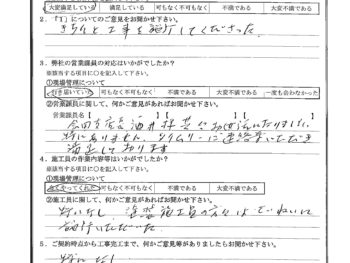 大変満足している 満足している 可もなく不可もなく 不満である 大変不満である
2.「1」についてのご意見をお聞かせ下さい。
きちんと工事を施行してくださった
3. 弊社の営業課員の対応はいかがでしたか？
※該当する項目に○を記入して下さい。
①現場管理について
行き届いていた 可もなく不可もなく 不満である 大変不満である 一度も会わなかった
②営業課員に関して、何かご意見があればお聞かせ下さい。
営業課員名【 】【 】
特にありません。タイムリーにご連絡いただき
満足しております
4. 施工員の作業内容等はいかがでしたか？
※該当する項目に○を記入して下さい。
①現場管理について
良くやってくれた 可もなく不可もなく 不満である 大変不満である
②施工員に関して、何かご意見があればお聞かせ下さい。
特になし、塗装施工員の方々はていねいに
施行いただいた。
5. ご契約時点から工事完工まで、何かご意見等がありましたらお聞かせ下さい。
特になし